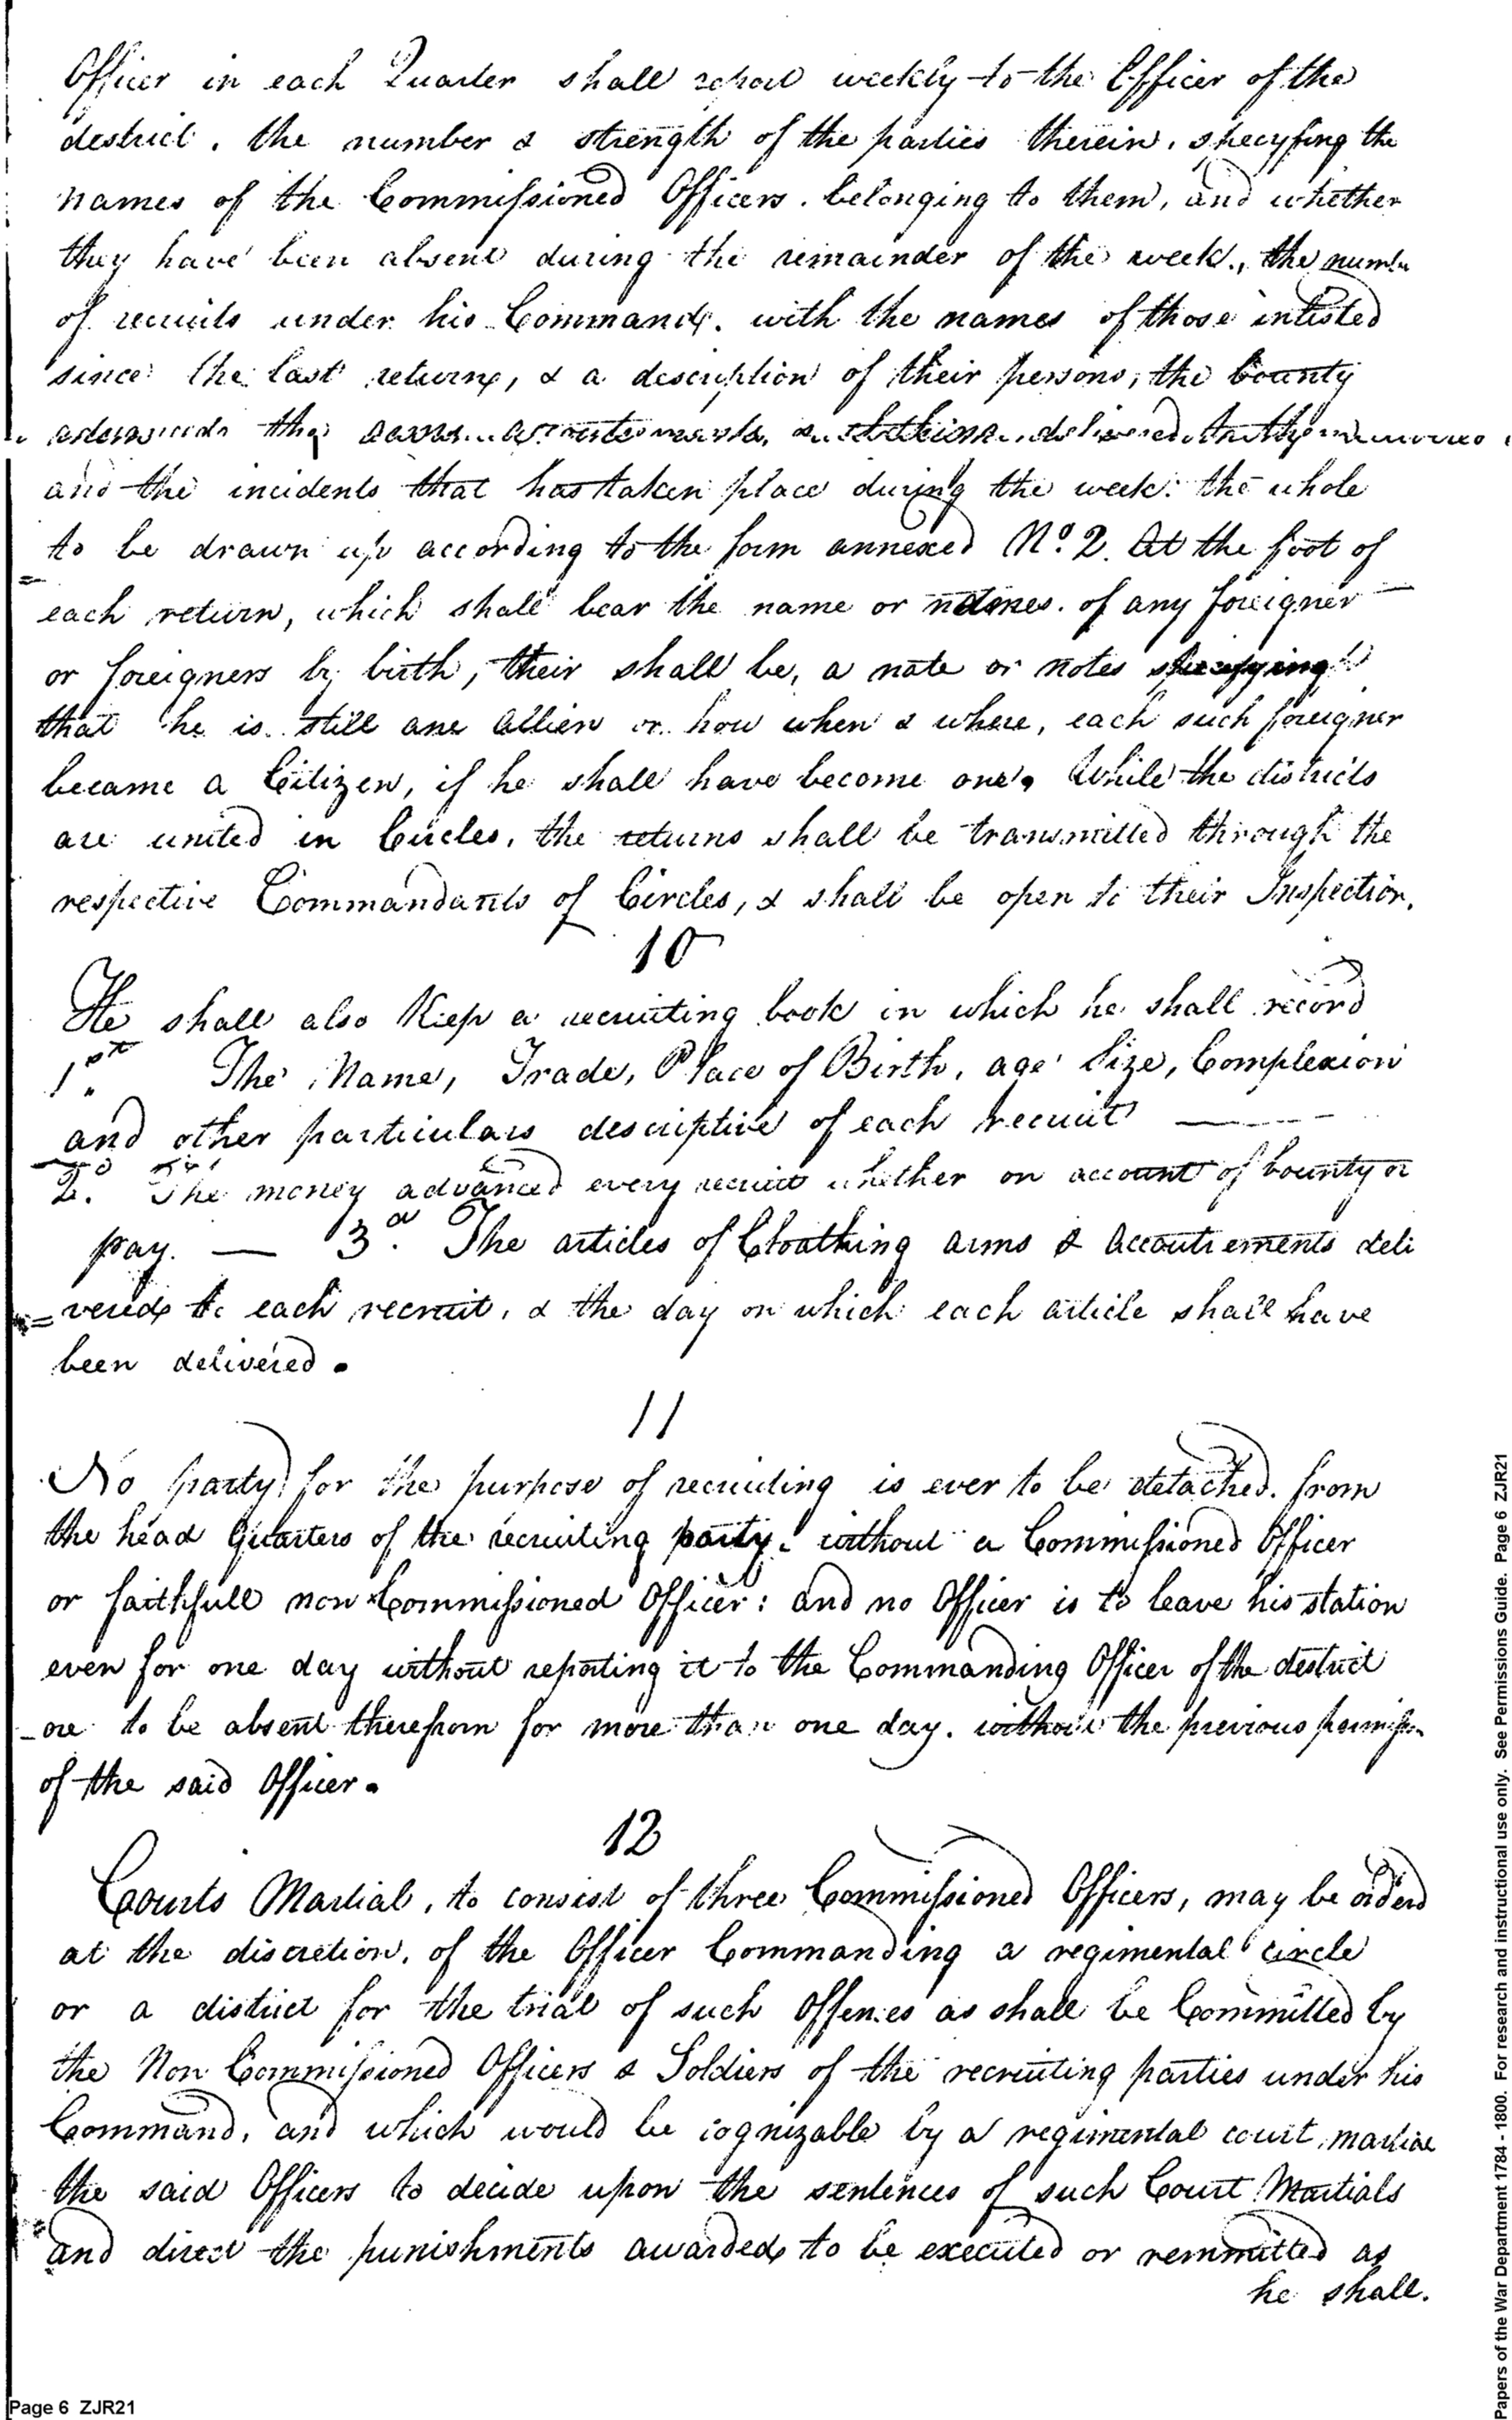 Officer in each Quarter shall report weekly to the Officer of the
destrict. the number & strength of the parties therein, specyfing the
names of the Commissioned Officers. belonging to them, and whether
they have been absent during the remainder of the week., the numbr
of recruits under his Command. with the names of those inlisted
since the last return, & a description of their persons, the bounty
the delivered
and the incidents that has taken place during the week: the whole
to be drawn up according to the form annexed No. 2. At the foot of
each return, which shall bear the name or names. of any foreigner
or foreigners by birth, their shall be, a note or notes specifying
that he is still ane Allien or how when & where, each such foreigner
became a Citizen, if he shall have become one. While the districts
are united in Circles, the returns shall be transmitted through the
respective Commandants of Circles, & shall be open to their Inspection.
10
He shall also Keep a recruiting book in which he shall record
1st. The Name, Trade, Place of Birth, age Size, Complexion
and other particulars descriptive of each recruit
2d. The money advanced every recruit whether on account of bounty or
pay. — 3d. The articles of Cloathing arms & accoutrements deli
=vered to each recruit, & the day on which each article shall have
been delivered.
11
No party for the purpose of recruiting is ever to be detached. from
the head Quarters of the recruiting party. without a Commissioned Officer
or faithfull non Commissioned Officer: and no Officer is to leave his station
even for one day without reporting it to the Commanding Officer of the destrict
ore to be absent therefrom for more than one day. without the previous permission
of the said Officer.
12
Courts Martial, to consist of three Commissioned Officers, may be orderd
at the discretion, of the Officer Commanding a regimental circle
or a district for the trial of such Offences as shall be Committed by
the Non Commissioned Officers & Soldiers of the recruiting parties under his
Command, and which would be cognizable by a regimental court martial
the said Officers to decide upon the sentences of such Court Martials
and direct the punishments awarded to be executed or remmitted as
he shall.
Page 6 ZJR21
Papers of the War Department 1784 - 1800. For research and instructional use only. See Permissions Guide. Page 6 ZJR21